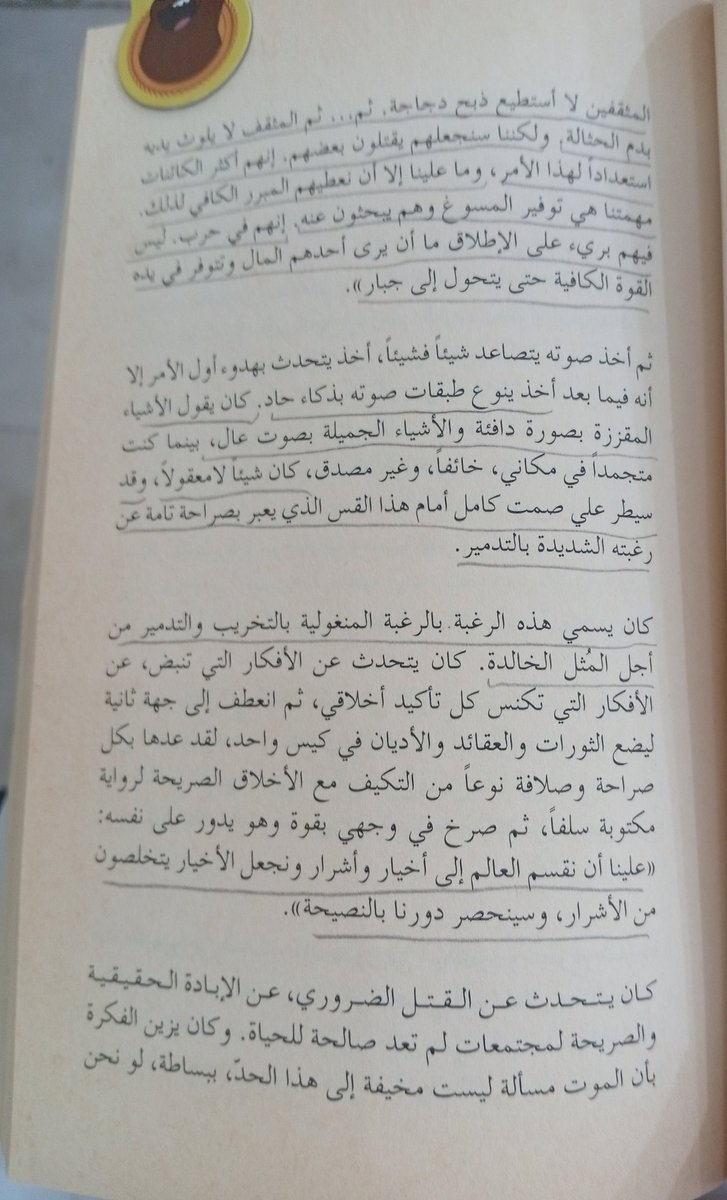 المثقفين لا أستطيع ذبح دجاجة. ثم... ثم المثقف لا يلوث يديه
بدم الحثالة. ولكننا سنجعلهم يقتلون بعضهم. إنهم أكثر الكائنات
استعداداً لهذا الأمر، وما علينا إلا أن نعطيهم المبرر الكافي لذلك.
مهمتنا هي توفير المسوغ وهم يبحثون عنه. إنهم في حرب. ليس
فيهم بريء على الإطلاق ما أن يرى أحدهم المال وتتوفر في يده
القوة الكافية حتى يتحول إلى جبار».
ثم أخذ صوته يتصاعد شيئاً فشيئاً، أخذ يتحدث بهدوء أول الأمر إلا
أنه فيما بعد أخذ ينوع طبقات صوته بذكاء حاد. كان يقول الأشياء
المقززة بصورة دافئة والأشياء الجميلة بصوت عال، بينما كنت
متجمداً في مكاني، خائفاً، وغير مصدق، كان شيئاً لامعقولاً، وقد
سيطر علي صمت كامل أمام هذا القس الذي يعبر بصراحة تامة عن
رغبته الشديدة بالتدمير.
كان يسمي هذه الرغبة بالرغبة المنغولية بالتخريب والتدمير من
أجل المُثل الخالدة. كان يتحدث عن الأفكار التي تنبض، عن
الأفكار التي تكنس كل تأكيد أخلاقي، ثم انعطف إلى جهة ثانية
ليضع الثورات والعقائد والأديان في كيس واحد، لقد عدها بكل
صراحة وصلافة نوعاً من التكيف مع الأخلاق الصريحة لرواية
مكتوبة سلفاً، ثم صرخ في وجهي بقوة وهو يدور على نفسه:
«علينا أن نقسم العالم إلى أخيار وأشرار ونجعل الأخيار يتخلصون
من الأشرار، وسينحصر دورنا بالنصيحة».
كان يتحدث عن القتل الضروري، عن الإبادة الحقيقية
والصريحة لمجتمعات لم تعد صالحة للحياة. وكان يزين الفكرة
بأن الموت مسألة ليست مخيفة إلى هذا الحدّ، ببساطة، لو نحن